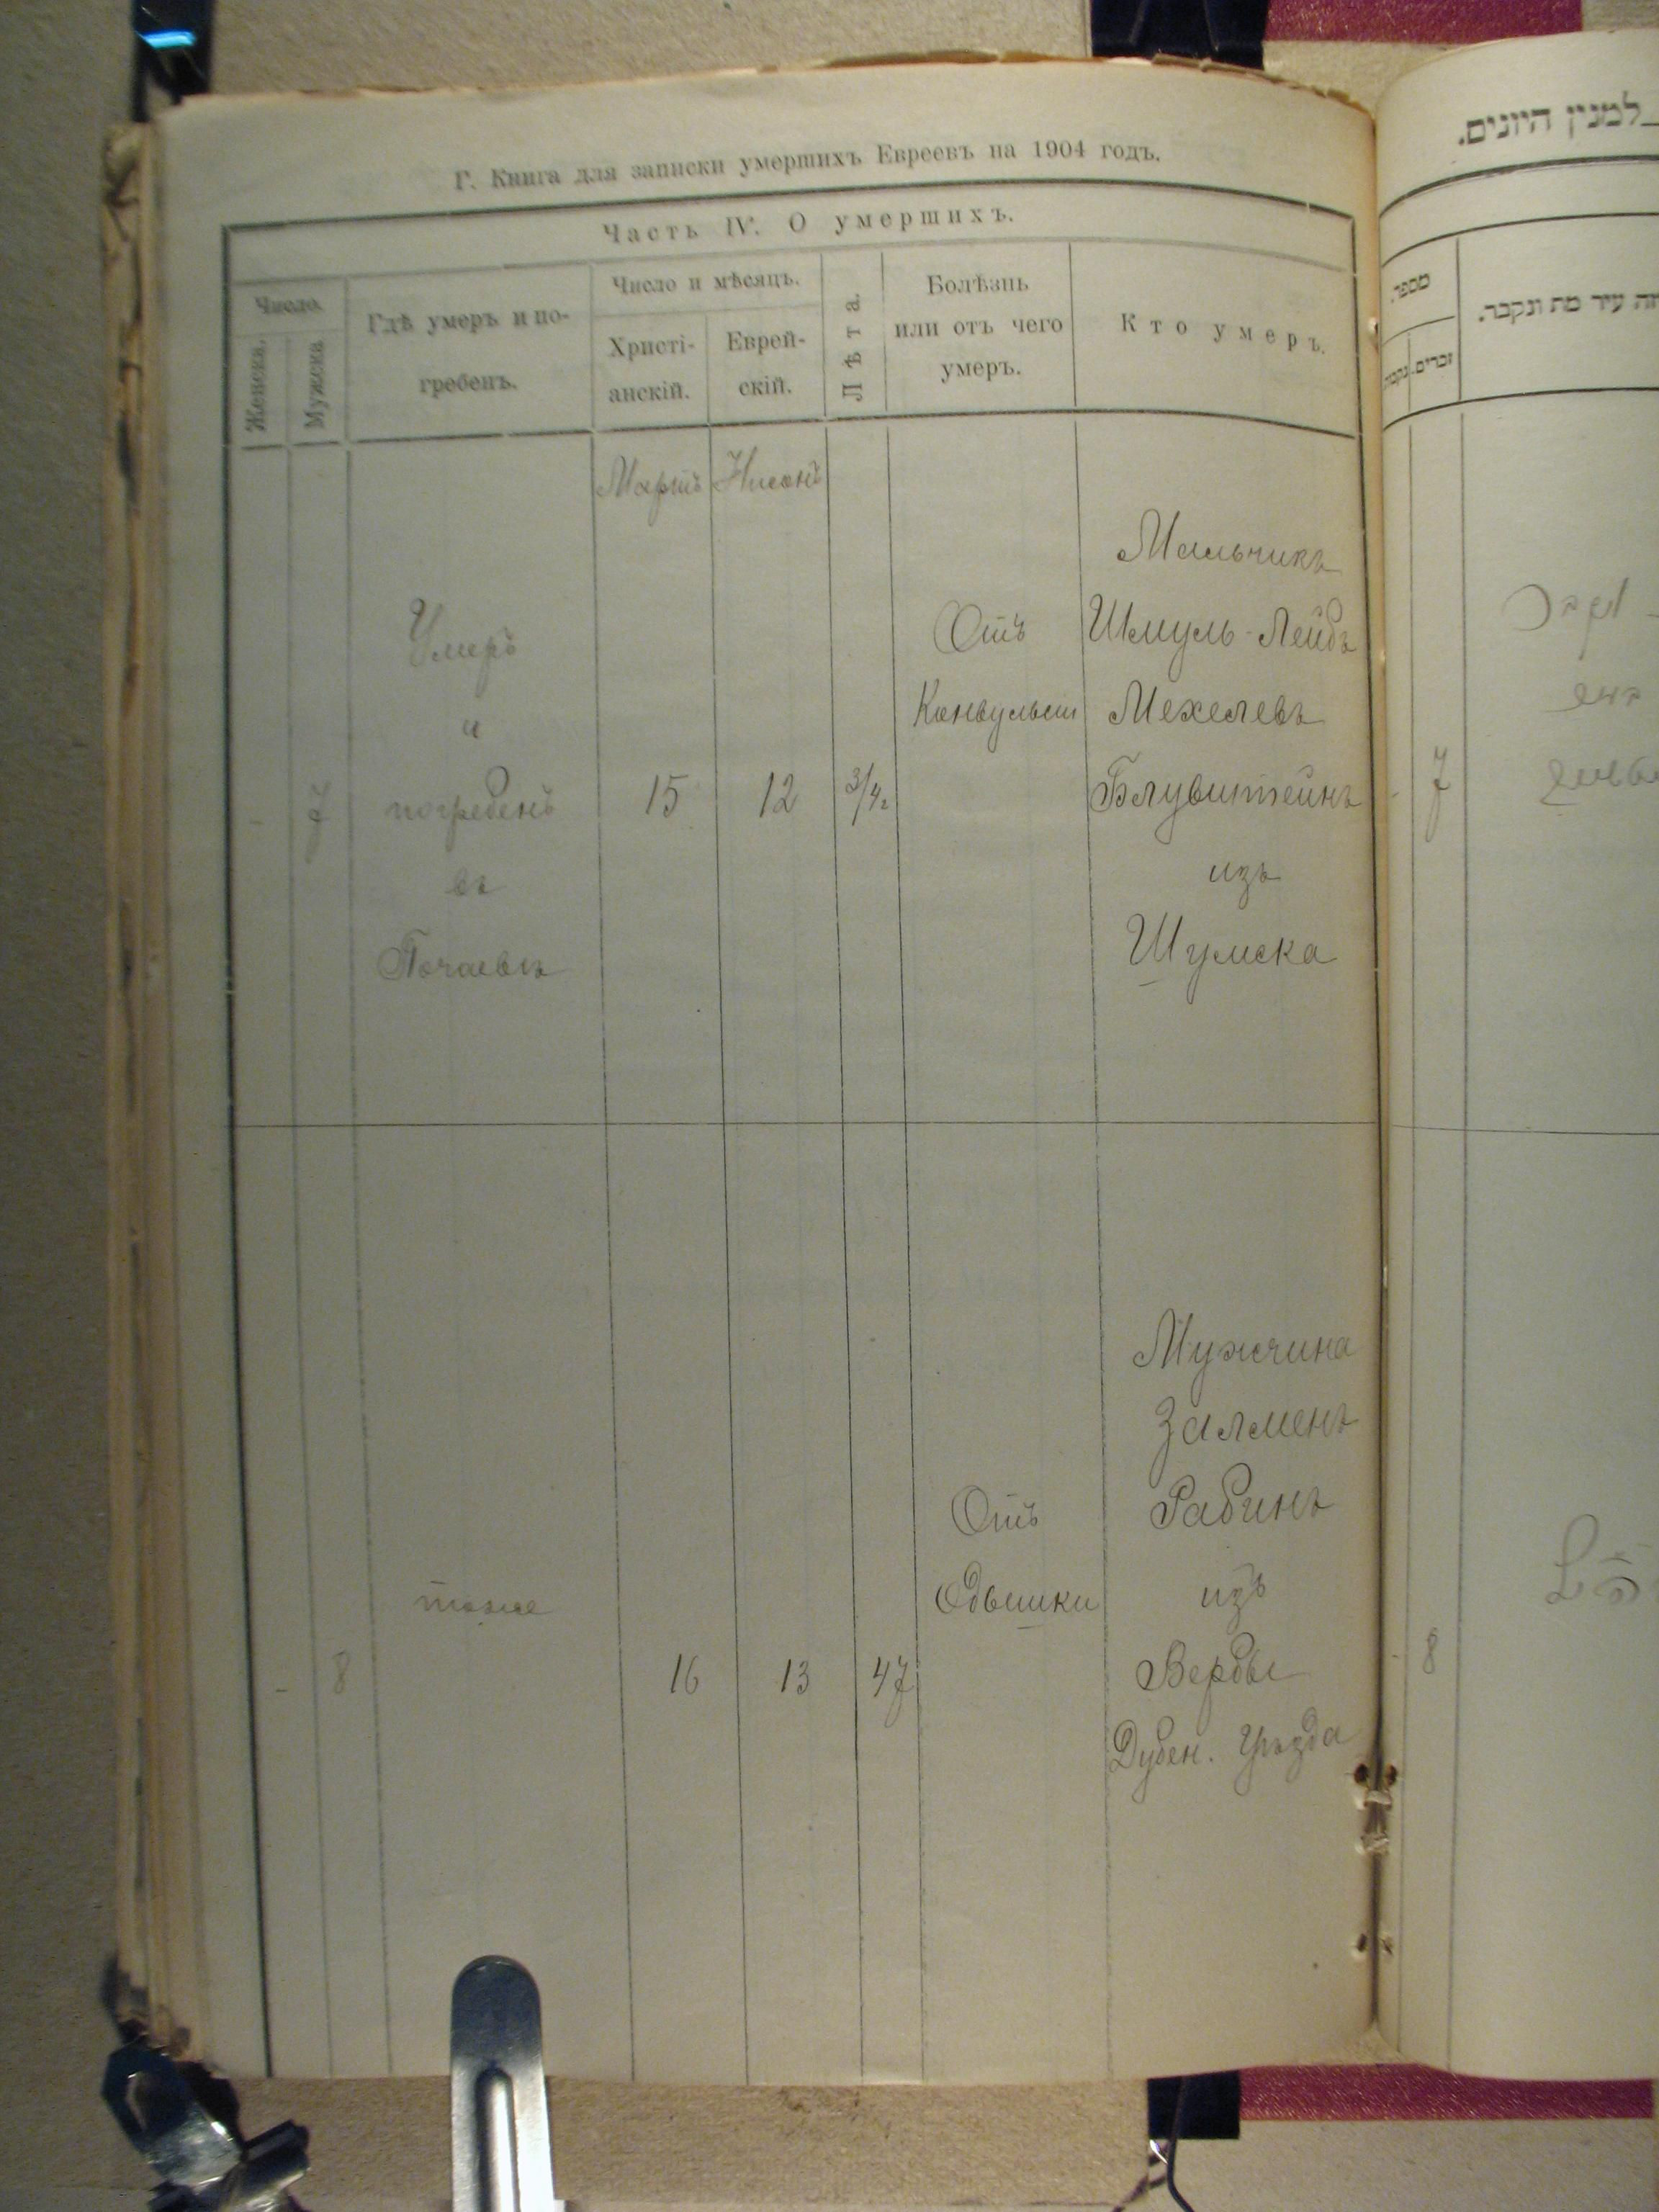 Г. Книга для записки умершихъ Евреевъ на 1904 годъ.
Часть IV. О умершихъ.
Число.
Женска.
Мужска
Гдѣ умеръ и по-
гребенъ.
Число и мѣсяцъ.
Христі-
анскій.
Еврей-
скій.
Лѣта.
Болѣзнь
или отъ чего
умеръ.
Кто умеръ.
Мартъ
Нисонъ
7
Умеръ
и
погребенъ
въ
Почаевѣ
15
12
3/4 г
Отъ
Конвульсiи
Мальчикъ
Шмуль-Лейбъ
Мехелевъ
Блувштейнъ
изъ
Шумска
- 8
тоже
16
13
47
Отъ
Одышки
Мужчина
Залменъ
Рабинъ
изъ
Вербы
Дубен. Уѣзда
למנין היונים.
מספר.
זכרים.
עיר מת ונקבר.
- 7
- 8